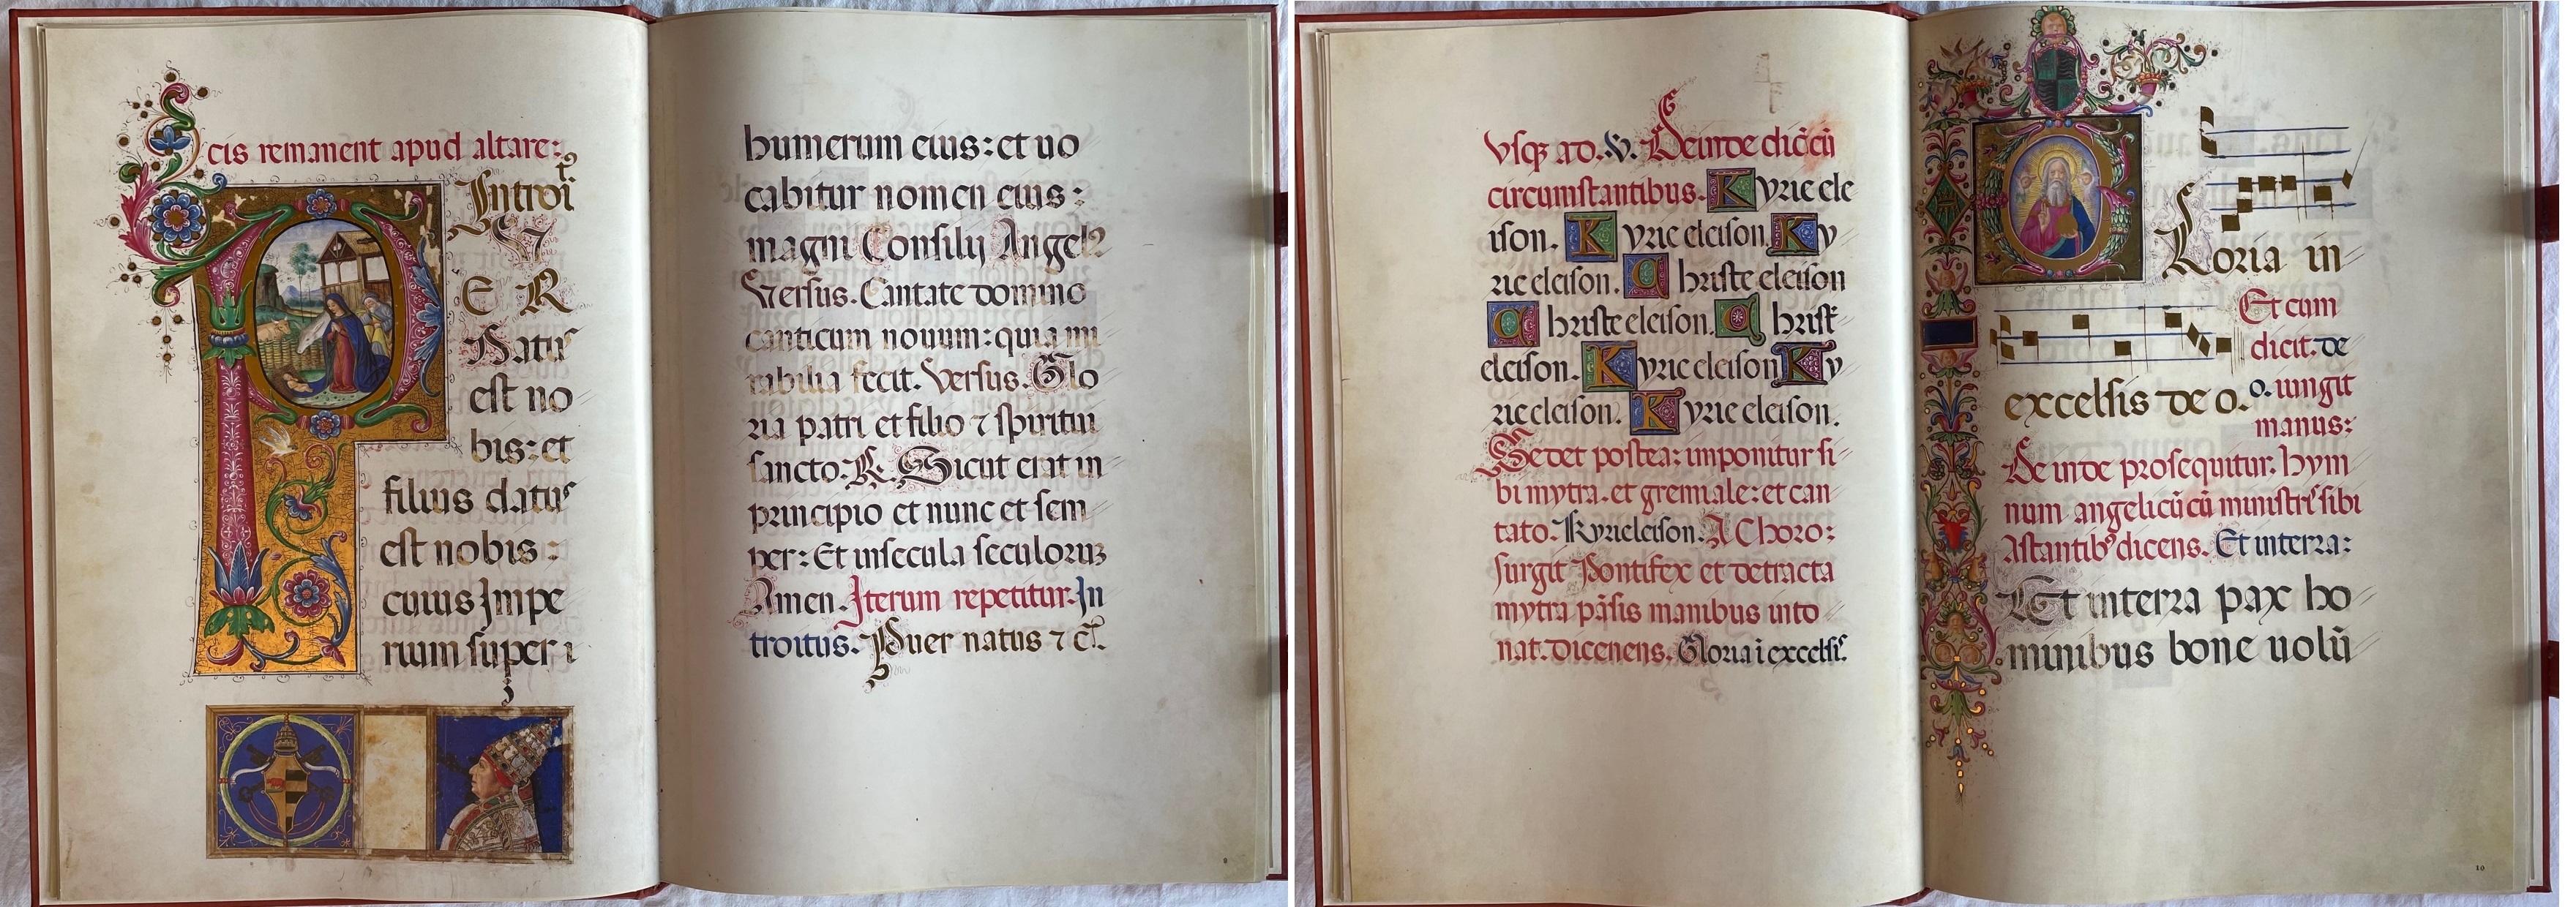 cis remanent apud altare:
Introit
P V
E R
Natus
est no
bis: et
filius datus
est nobis:
cuius Impe
rium super
humerum eius: et uo
cabitur nomen eius:
magni Consilij Angelus
Versus. Cantate domino
canticum nouum: quia mi
rabilia fecit. Versus. Glo
ria patri et filio ⁊ spiritui
sancto. R. Sicut erat in
principio et nunc et sem
per: Et insecula seculorum
Amen. Iterum repetitur. In
troitus. Puer natus ⁊ cͭ.
8
Vsqꝫ ad. V. Deinde dicēti
circumstantibus. Kyrie ele
ison. Kyrie eleison. Ky
rie eleison. Christe eleison
Christe eleison. Christe
eleison. Kyrie eleison Ky
rie eleison. Kyrie eleison.
Sedet postea: imponitur si
bi mytra. et gremiale: et can
tato. Kyrieleison. A Choro:
surgit Pontifex et detracta
mytra pāsis manibus into
nat. dicenens. Gloria i excelsis.
Gloria in
excelsis de o.
Et cum
dicit. de
o. iungit
manus:
Deinde prosequitur. hym
num angelicū cū ministris sibi
Astantibꝰ dicens. Et interra:
Et interra pax ho
minibus bone uolū
10